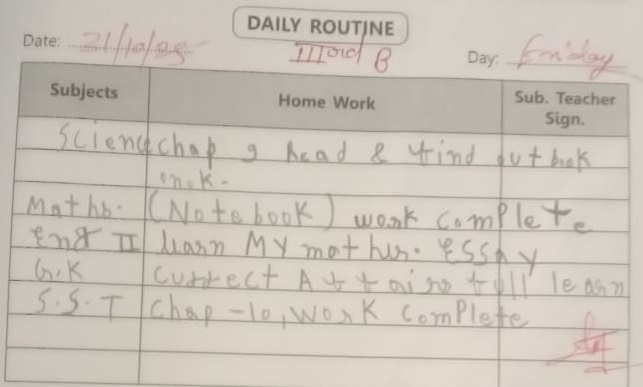 DAILY ROUTINE
Date: 31/10/25
IIIrd B
Day: Friday
Subjects Home Work Sub. Teacher Sign.
Science chap 9 Read & find out book
Maths. (Notebook) work complete
Eng II learn My mother. Essay
G.K Currect Affairs full learn
S.S.T Chap -10, Work Complete